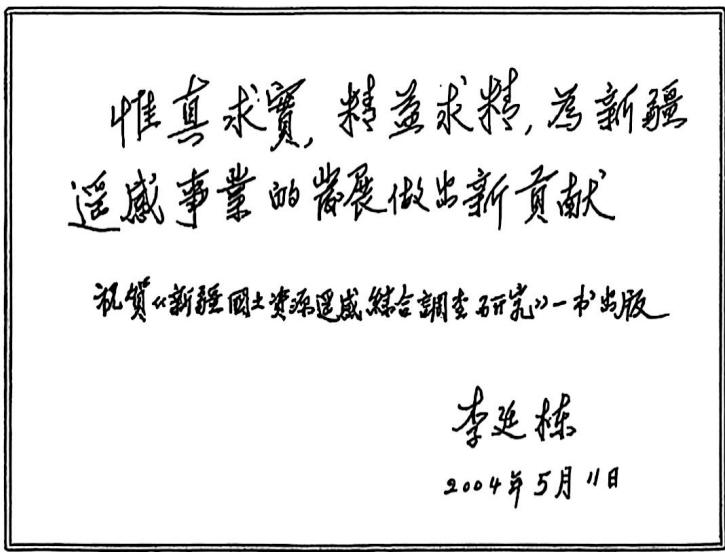 惟真求實,精益求精,為新疆
遥感事業的發展做出新貢献
祝賀《新疆國土資源遥感綜合調查研究》一书出版
李廷栋
2004年5月11日